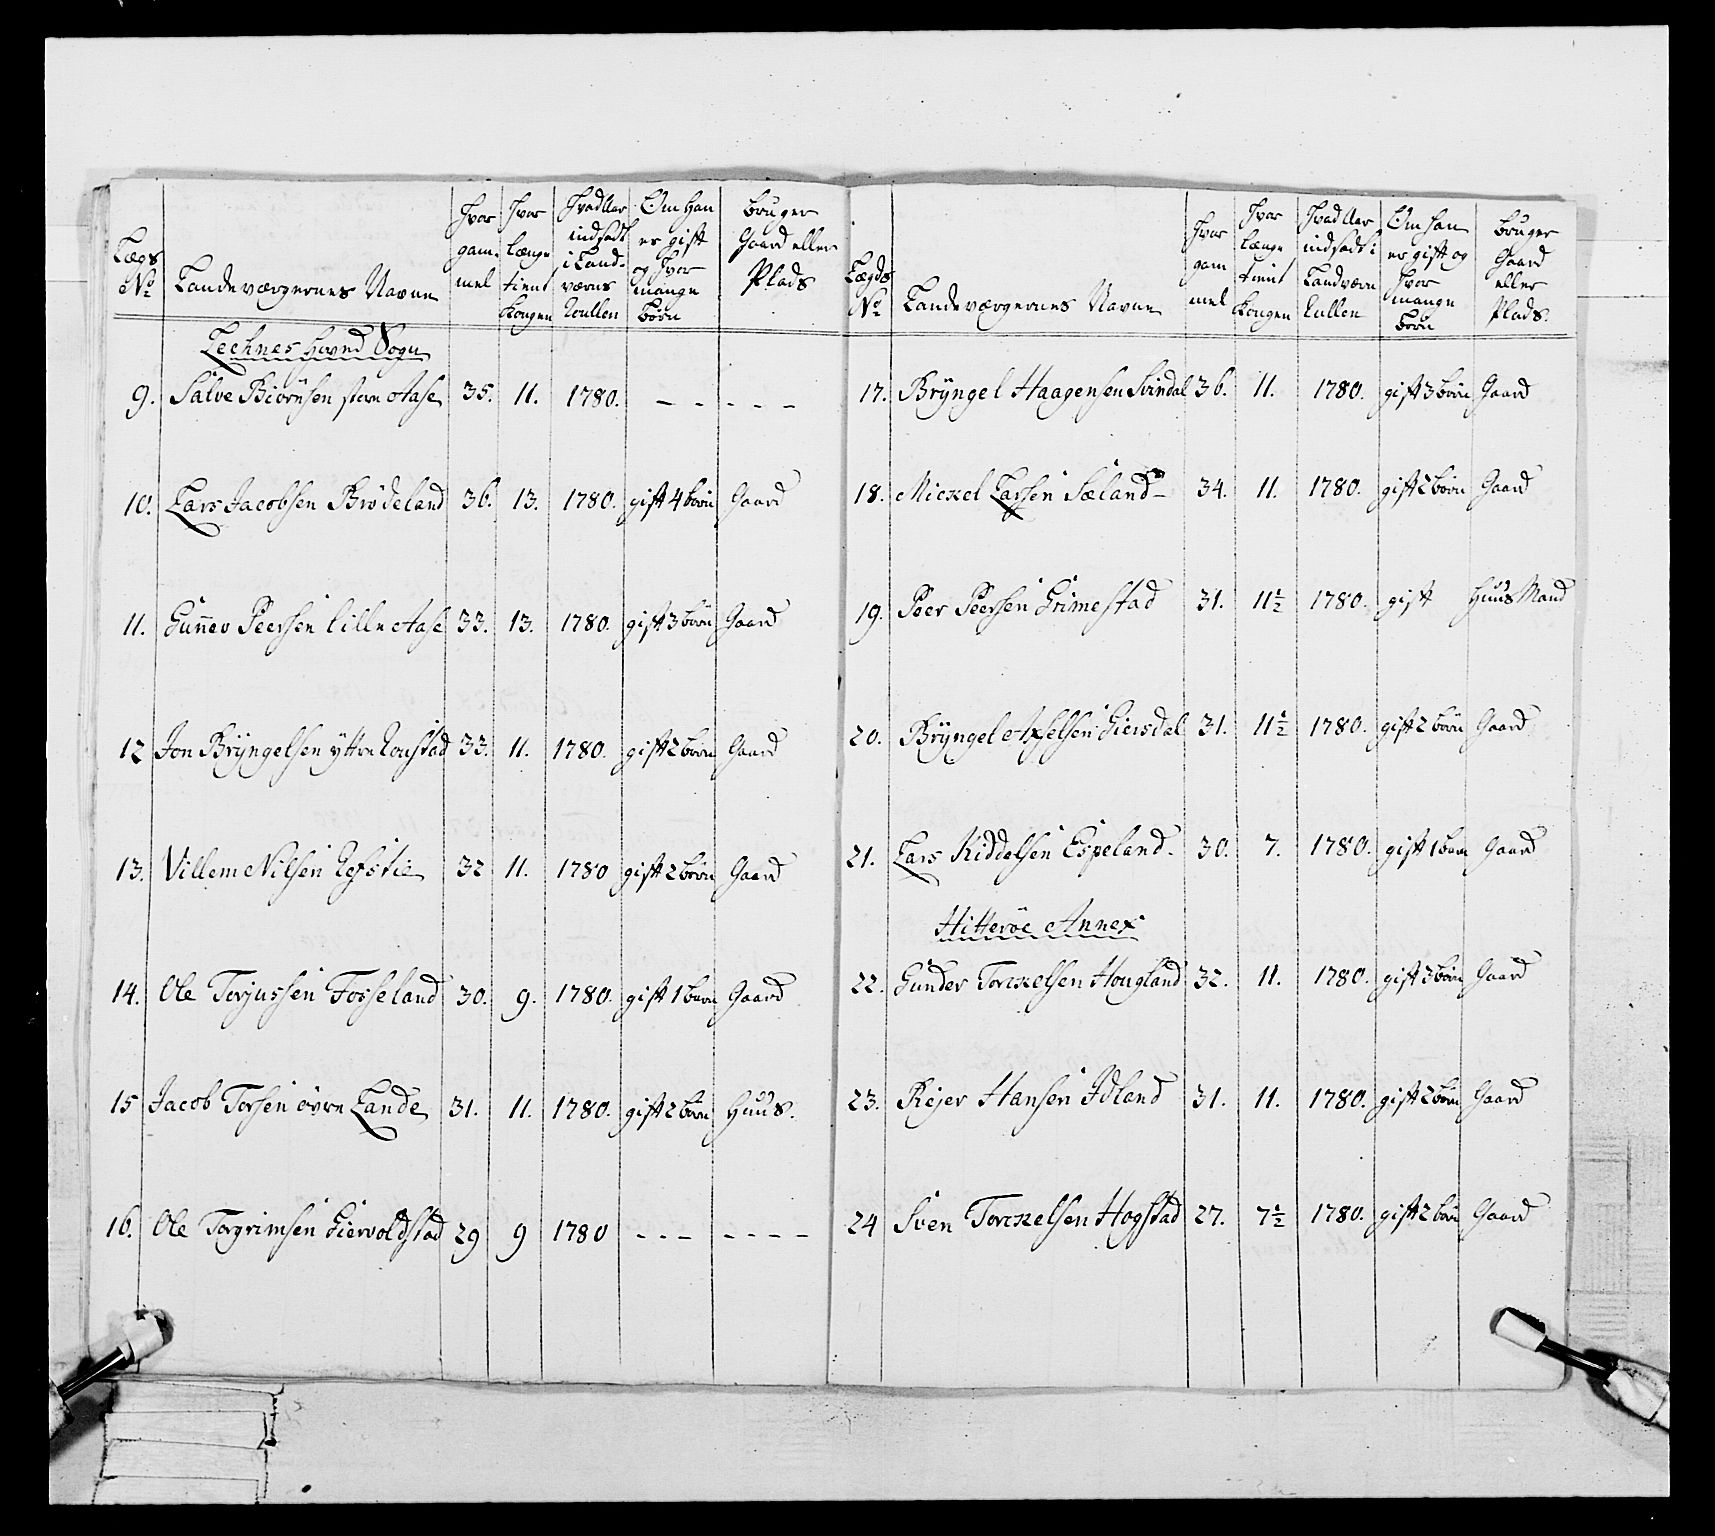 Lægs No | Landeværgernes Navne | Hvor gam- mel | Hvor længe tient Kongen | Hvad Aar indsadt i Land- værns Roullen | Om Han er gift og Hvor mange Børn | bruger Gaard eller Plads
Lechnes Hoved Sogn
9. Salve Biörnsen store Aase 35. 11. 1780. - - - - -
10. Lars Jacobsen Brödeland 36. 13. 1780. gift 4 börn Gaard
11. Guñer Peersen lille Aase 33. 13. 1780. gift 3 börn Gaard
12 Jon Bryngelsen yttre Roustad 33. 11. 1780. gift 2 börn Gaard
13. Villem Nilsen Refstie 32 11. 1780 gift 2 börn Gaard
14. Ole Torjussen Fosseland 30. 9. 1780. gift 1 barn Gaard
15 Jacob Torsen övre Lande 31. 11. 1780. gift 2 börn Huus.
16. Ole Torgrimsen Giervoldstad 29 9 1780 - - - - - - -
Lægds No | Landeværgernes Navne | Hvor gam mel | Hvor længe tient Kongen | Hvad Aar indsadt i Landværn Rullen | Om Han er gift og Hvor mange Børn | bruger Gaard eller Plads.
17. Bryngel Haagensen Svindal 36. 11. 1780. gift 3 börn Gaard
18. Mickel Larsen Sæland 34. 11. 1780. gift 2 börn Gaard
19. Peer Peersen Grimestad 31. 11½ 1780. gift Huus Mand
20. Bryngel Axelsen Giersdal 31. 11½ 1780. gift 2 börn Gaard
21. Lars Kiddelsen Espeland. 30. 7. 1780. gift 1 barn Gaard
Hitteröe Annex
22. Gunder Torckelsen Hougland 32. 11. 1780. gift 3 börn Gaard
23. Rejer Hansen Idland 31. 11. 1780. gift 2 börn Gaard
24 Sven Torckelsen Hogstad 27. 7½ 1780. gift 2 börn Gaard